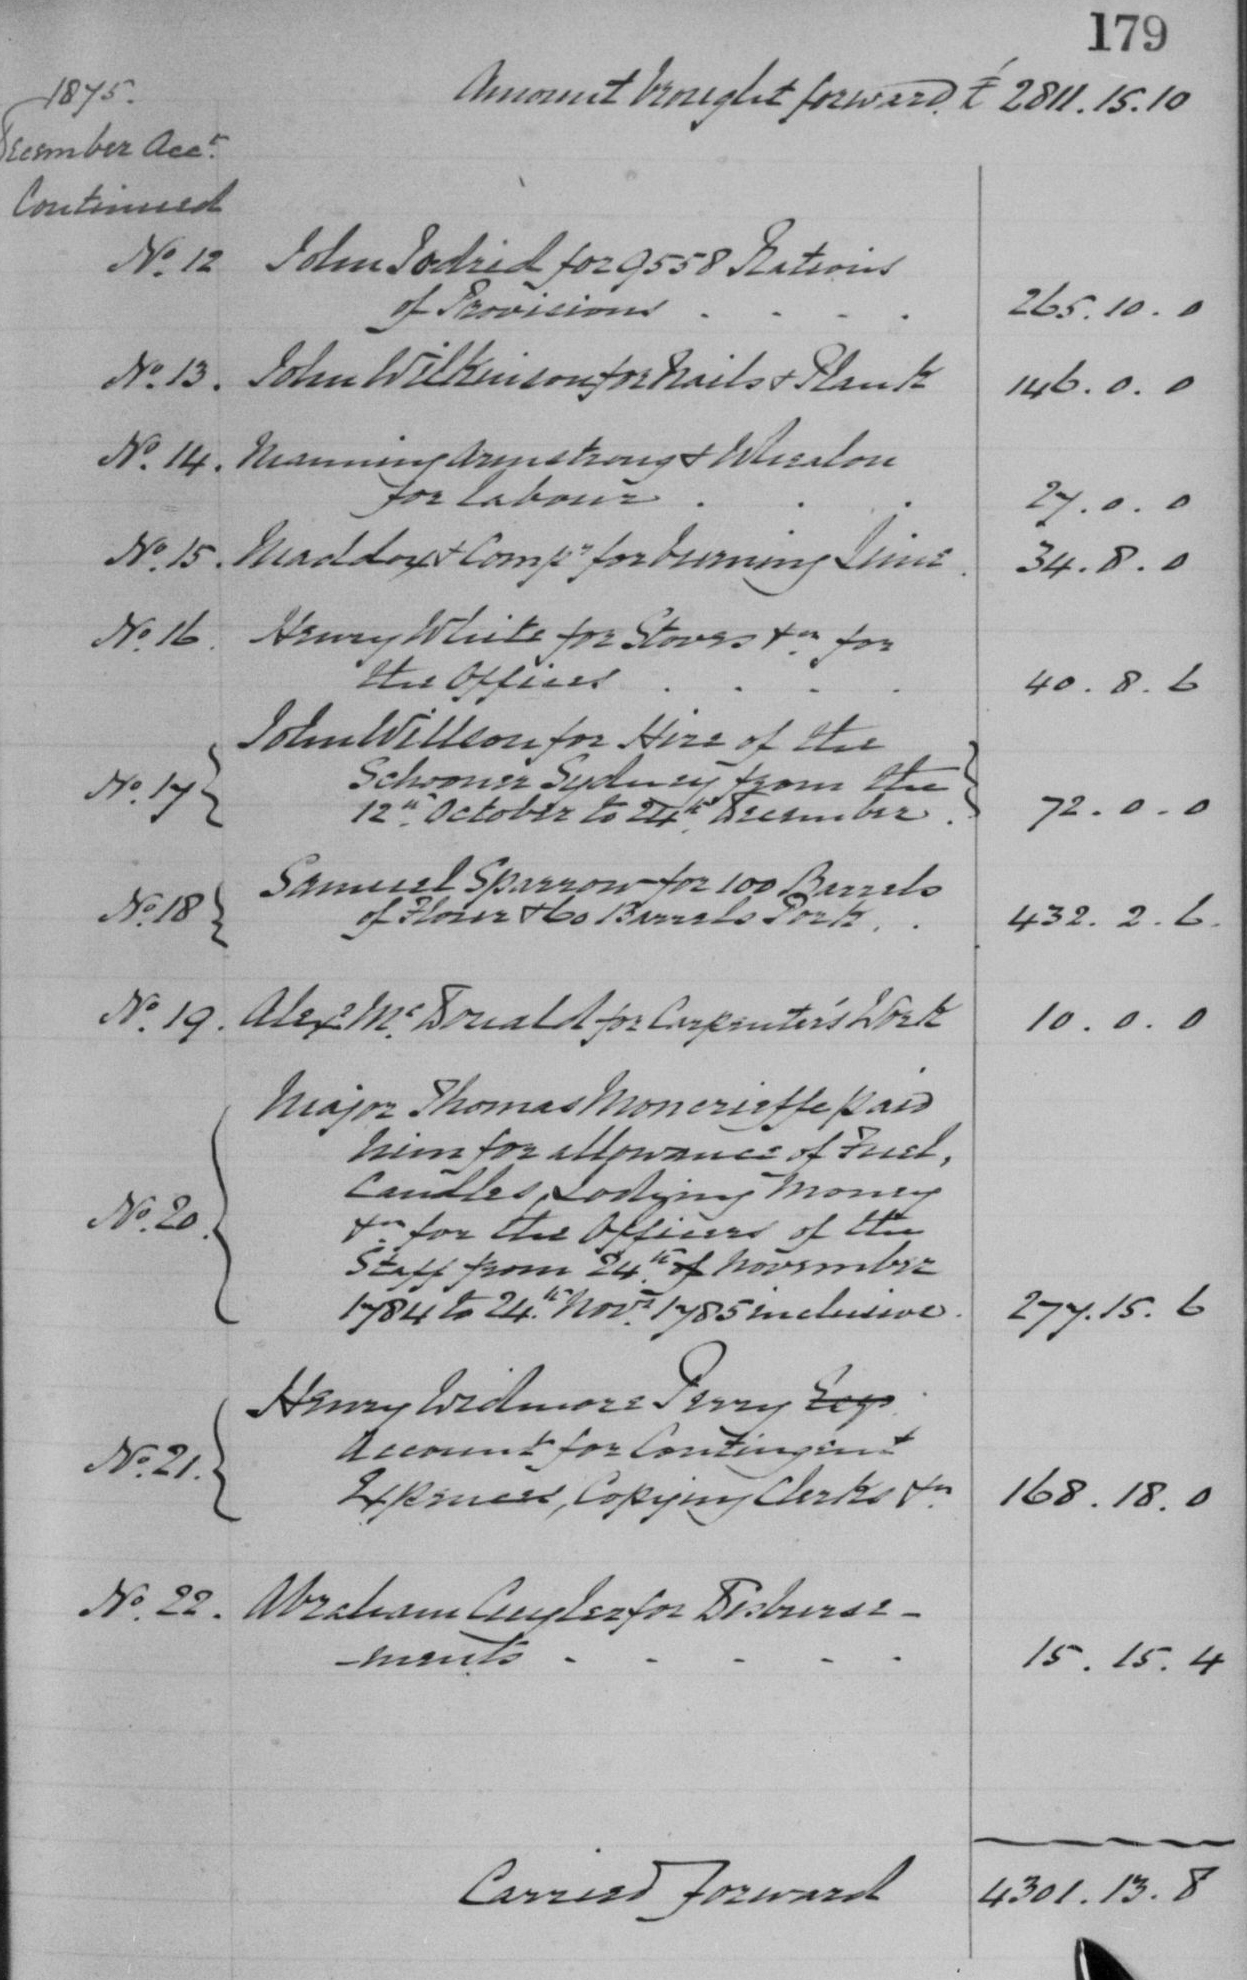 179
1875.
Amount brought forward £ 2811.15.10
December Acct.
Continued
No. 12 John Jodrid for 9558 Rations
of Provisions . . . . 265.10.0
No. 13. John Wilkinson for Nails & Plank 146.0.0
No. 14. Manning Armstrong & Whealon
for labour . . . 27.0.0
No. 15. Maddox & Compy for burning Lime. 34.8.0
No. 16. Henry White for Stoves &ca. for
the Offices . . . . 40.8.6
John Willson for Hire of the
Schooner Sydney from the
No. 17 12th. October to 24th. December. 72.0.0
Samuel Sparrow for 100 Barrels
No. 18 of Flour & 60 Barrels Pork. . 432.2.6.
No. 19. Alexr. Mc.Donald for Carpenter's Work 10.0.0
Major Thomas Moncrieffe paid
him for allowance of Fuel,
Candles, Lodging Money
No. 20. &ca. for the Officers of the
Staff from 24th. of November
1784 to 24.th Novr. 1785 inclusive. 277.15.6
Henry Widmore Perry Esqr.
Account for Contingent
No. 21. Expences, Copying Clerks &ca. 168.18.0
No. 22. Abraham Cuyler for Disburse-
-ments - - - - - 15.15.4
Carried Forward 4301.13.8